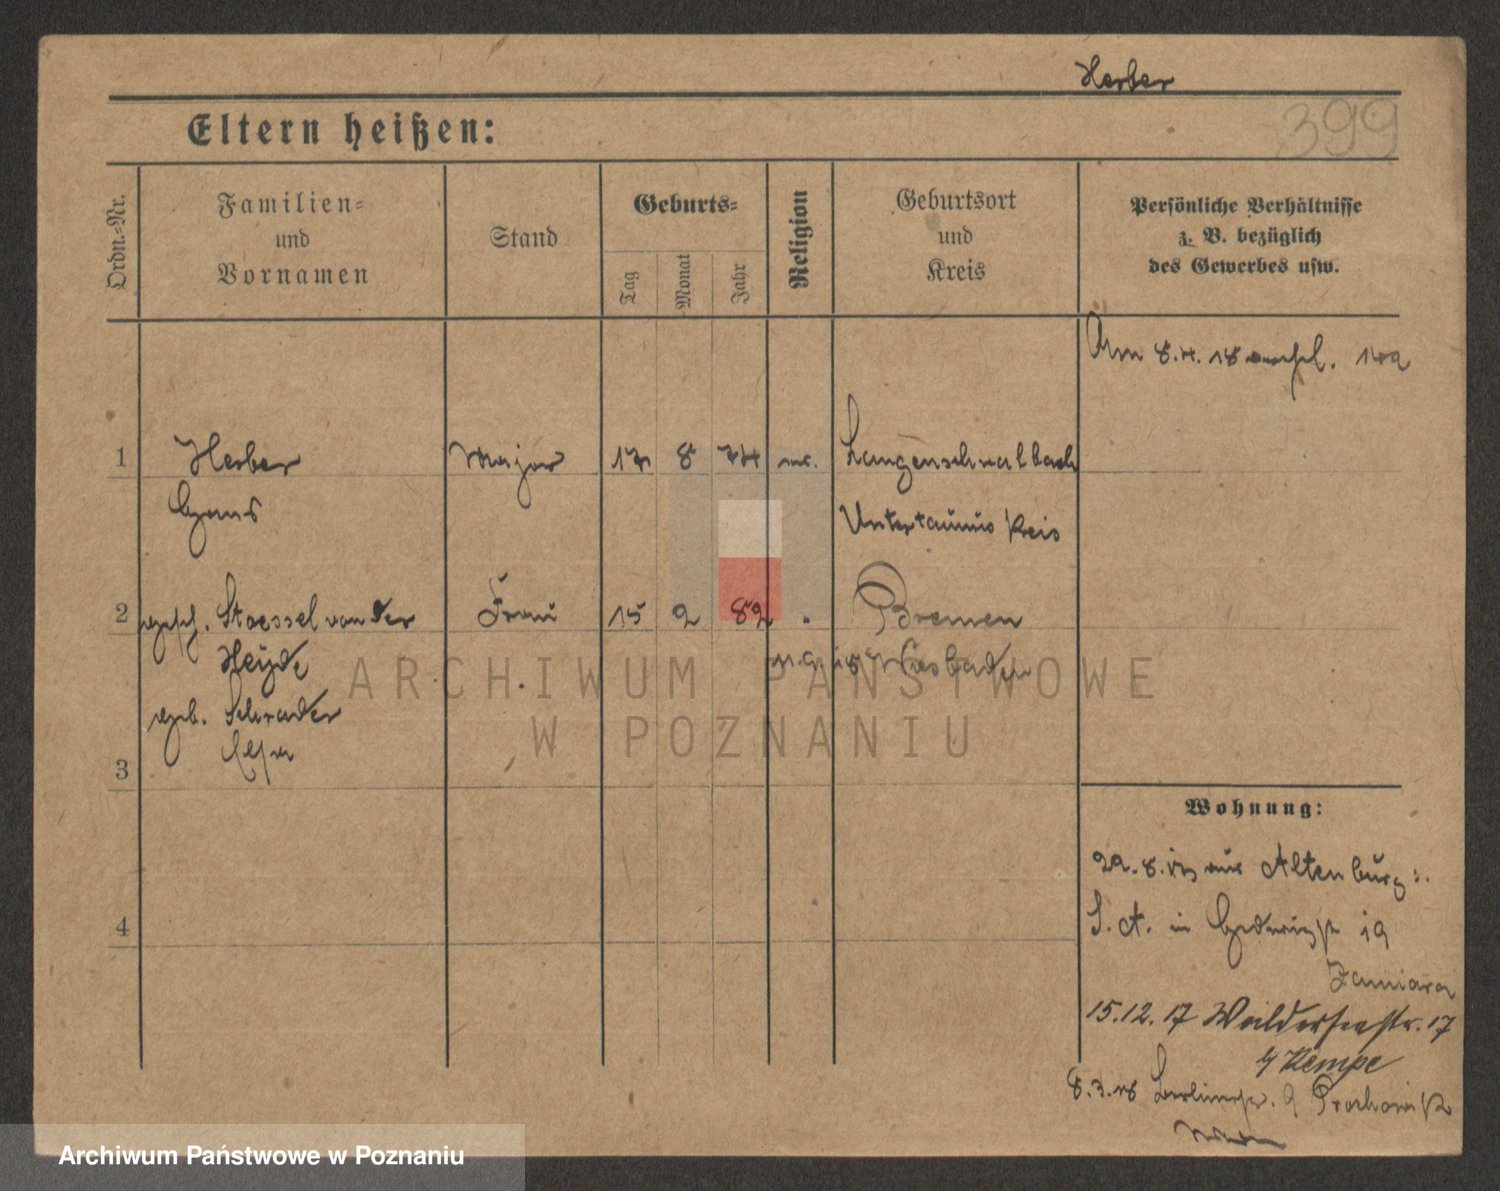 Herber
399
Eltern heißen:
Ordn.-Nr.
Familien=
und
Vornamen
Stand
Geburts=
Tag
Monat
Jahr
Religion
Geburtsort
und
Kreis
Persönliche Verhältnisse
z. B. bezüglich
des Gewerbes usw.
Am 8.4.18
1 Herber Major 17 8 74 Langenschwalbach
Hans Untertaunus Kreis
2 gesch. Stoessel von der Frau 15 2 82 Bremen
Heyde Wiesbaden
geb. Schrader
Elsa
3
4
Wohnung:
29.8. aus Altenburg
S. A. in 19
15.12.17 Walderseestr. 17
b/ Kempe
8.3.18 Berlinerstr. 9
ARCHIWUM PAŃSTWOWE
W POZNANIU
Archiwum Państwowe w Poznaniu